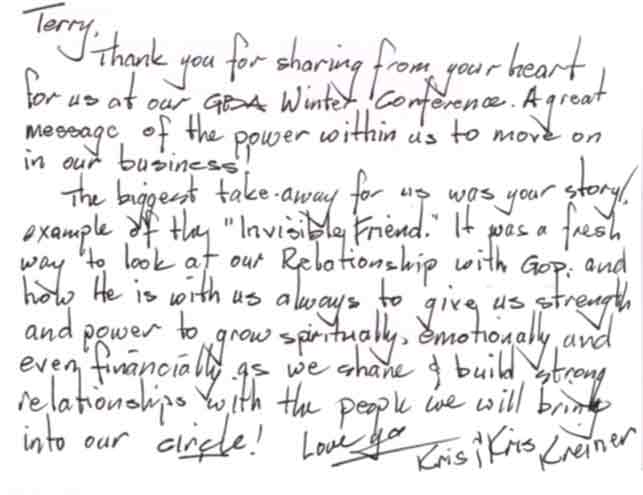 Terry,
Thank you for sharing from your heart
for us at our Winter Conference. A great
message of the power within us to move on
in our business!
The biggest take-away for us was your story/
example of the "Invisible Friend." It was a fresh
way to look at our Relationship with God; and
how He is with us always to give us strength
and power to grow spiritually, emotionally and
even financially as we share & build strong
relationships with the people we will bring
into our circle!
Love ya
Kris & Kris Kreiner